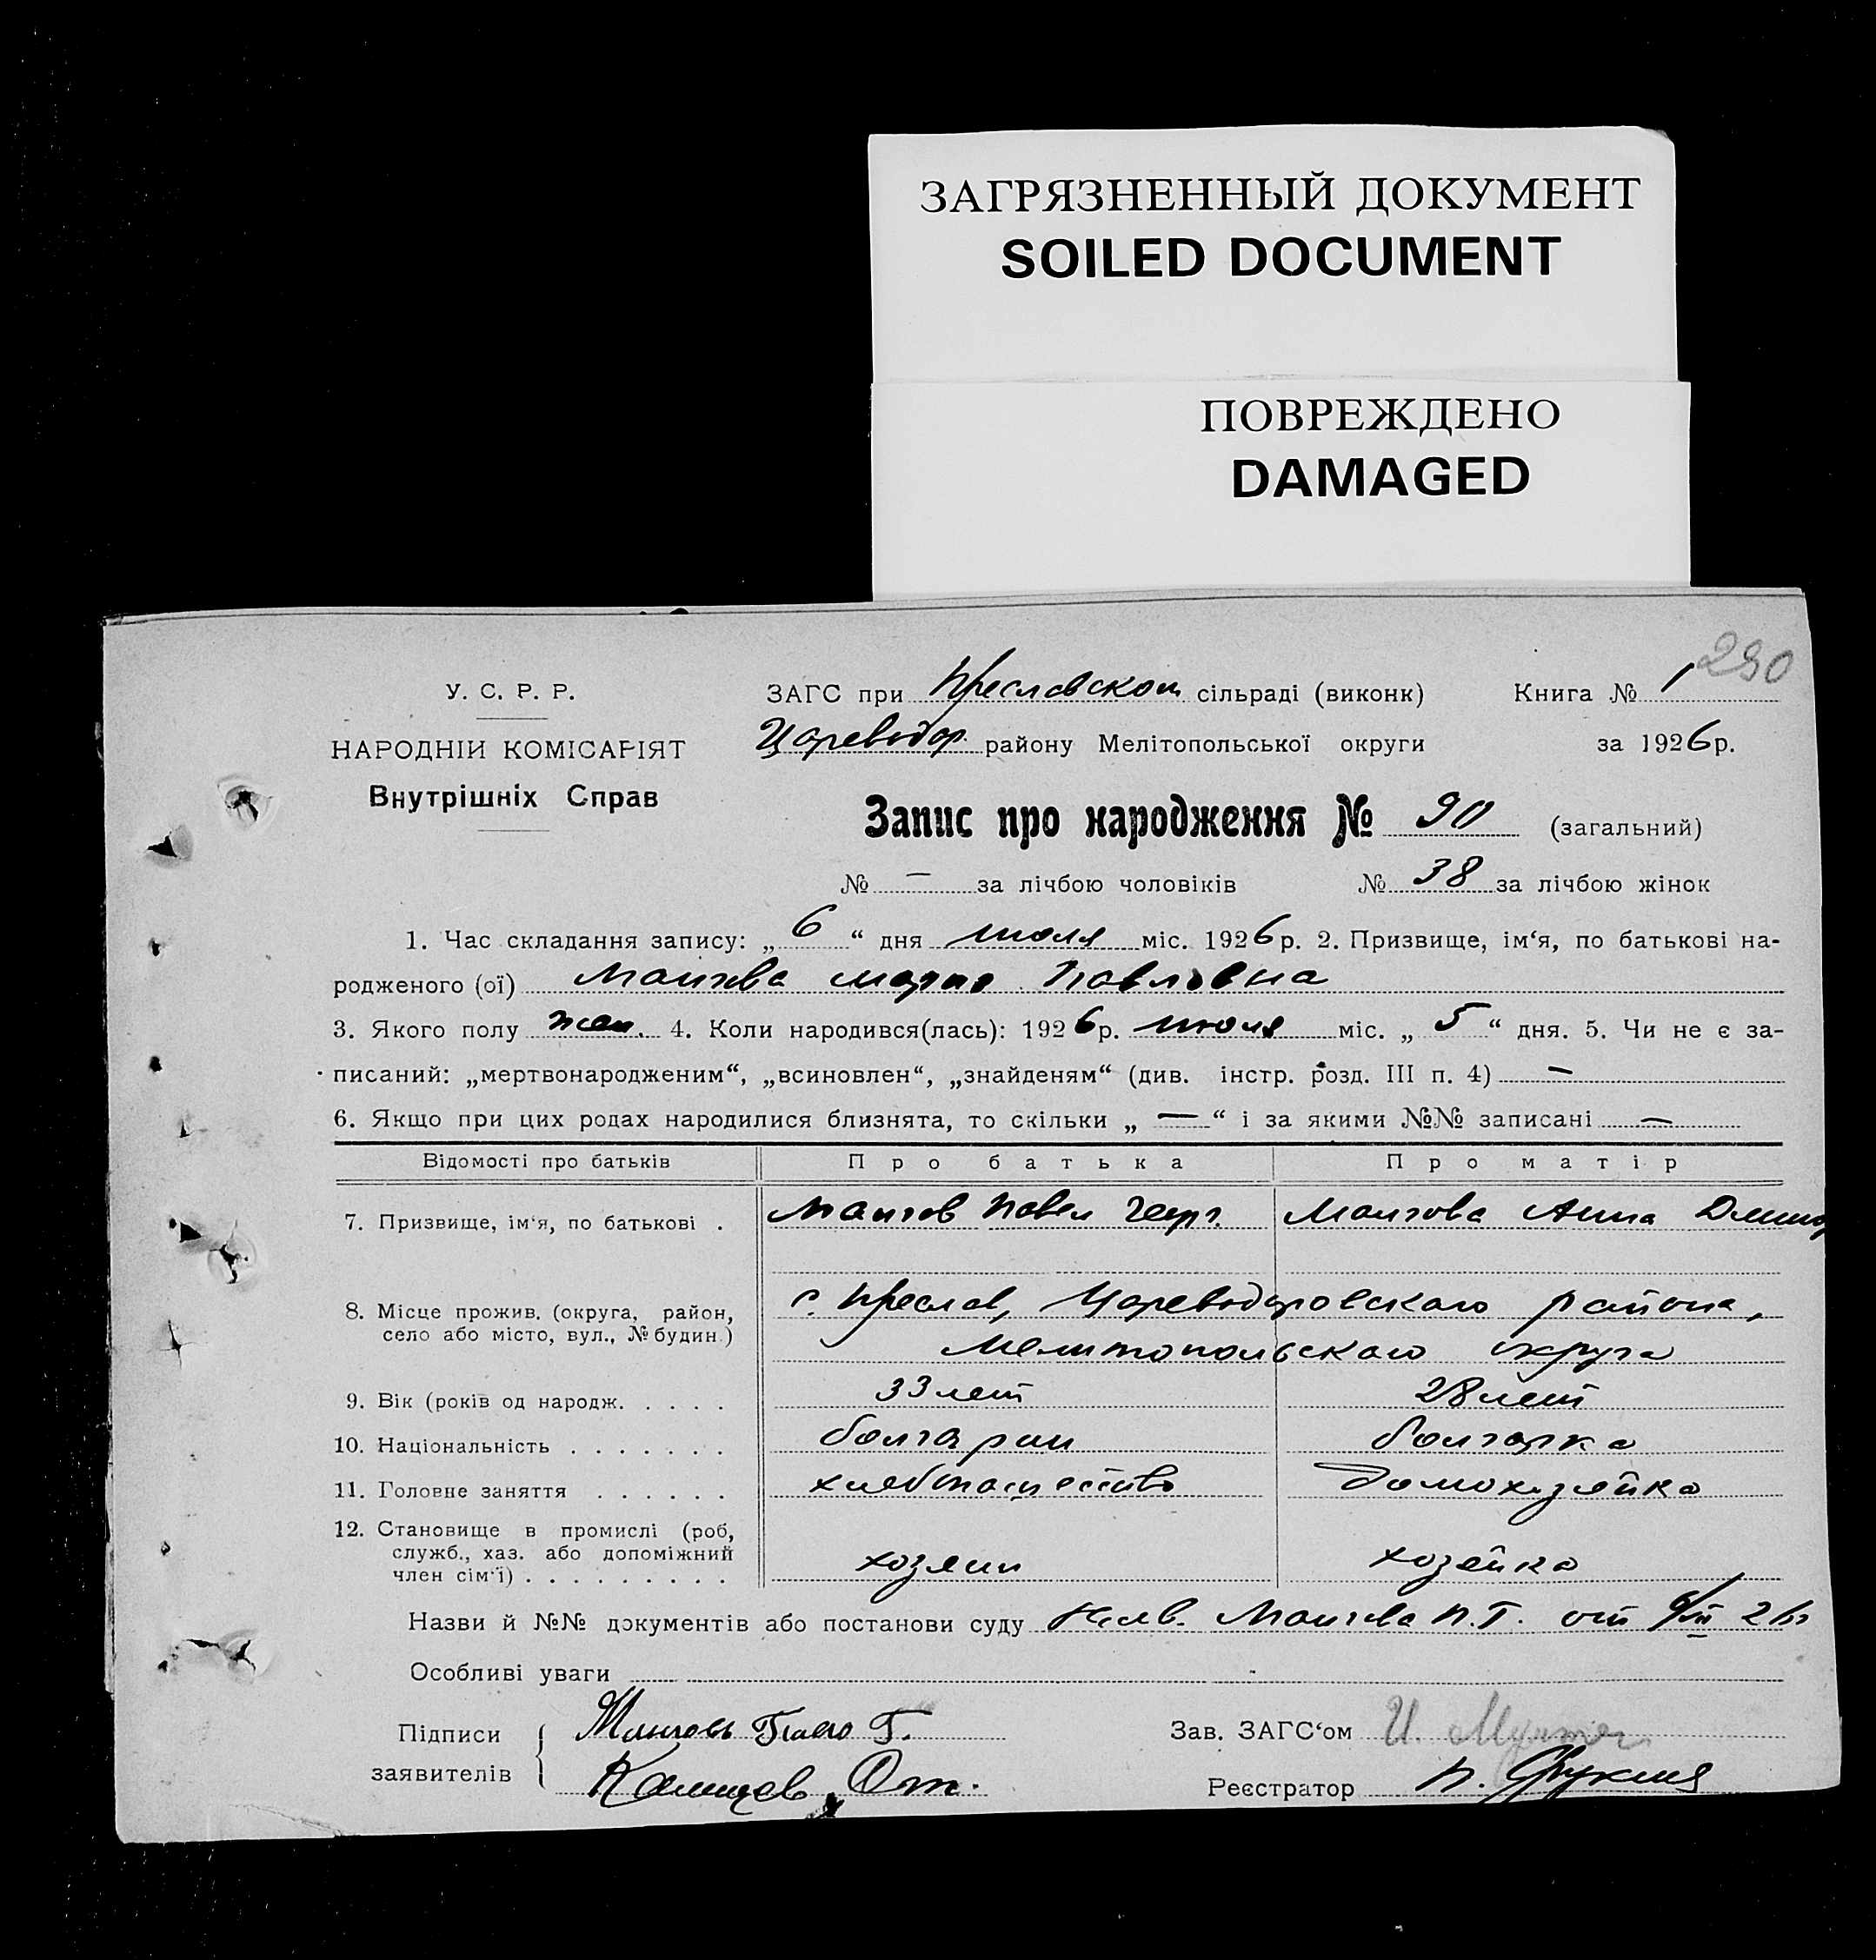 ЗАГРЯЗНЕННЫЙ ДОКУМЕНТ
SOILED DOCUMENT
ПОВРЕЖДЕНО
DAMAGED
290
У. С. Р. Р.
ЗАГС при Преславском сільраді (виконк) Книга № 1
НАРОДНІЙ КОМІСАРІЯТ
Цареводар. району Мелітопольської округи за 1926 р.
Внутрішніх Справ
Запис про народження № 90 (загальний)
№ — за лічбою чоловіків № 38 за лічбою жінок
1. Час складання запису: „6“ дня июля міс. 1926 р. 2. Призвище, ім‘я, по батькові на-
родженого (ої) Мария Павловна
3. Якого полу жен. 4. Коли народився(лась): 1926 р. июля міс. „5“ дня. 5. Чи не є за-
писаний: „мертвонародженим“, „всиновлен“, „знайденям“ (див. інстр. розд. III п. 4) —
6. Якщо при цих родах народилися близнята, то скільки „—“ і за якими №№ записані —
Відомості про батьків Про батька Про матір
7. Призвище, ім‘я, по батькові . Павел Георг. Анна Дмитр
8. Місце прожив. (округа, район, село або місто, вул., № будин.) с. Преслав, Цареводаровского района,
Мелитопольского округа
9. Вік (років од народж. . . . . 33 лет 28 лет
10. Національність . . . . . . . болгарин болгарка
11. Головне заняття . . . . . . хлебопашество домохозяйка
12. Становище в промислі (роб, служб., хаз. або допоміжний член сім‘ї) . . . . . . . . . хозяин хозяйка
Назви й №№ документів або постанови суду П. Г. от 6/VII 26 г
Особливі уваги
Підписи заявителів
Зав. ЗАГС‘ом И.
Реєстратор